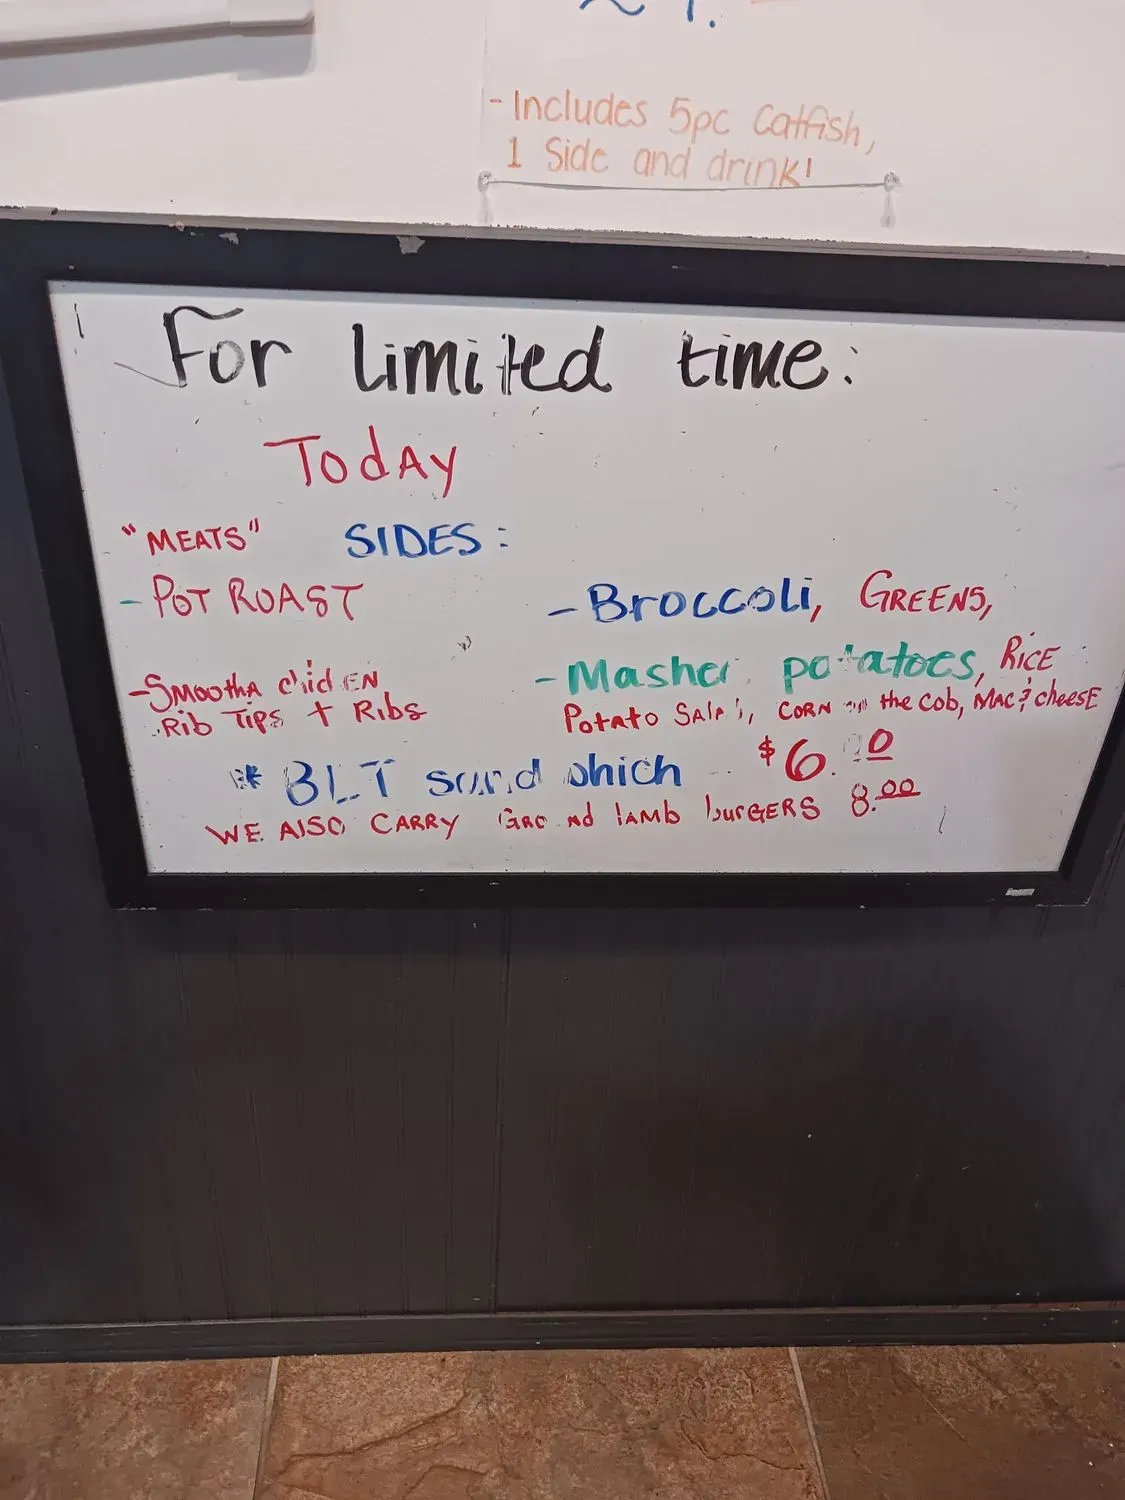 - Includes 5pc Catfish,
1 Side and drink!
For limited time:
Today
"MEATS" SIDES:
- POT ROAST
- Broccoli, GREENS,
- SMOOTHA chidEN
Rib Tips + Ribs
- Mashe potatoes, RICE
Potato Sala, CORN on the cob, MAC & cheesE
* BLT sandwhich $6.00
WE AlSO CARRY Ground lamb burGERS 8.00